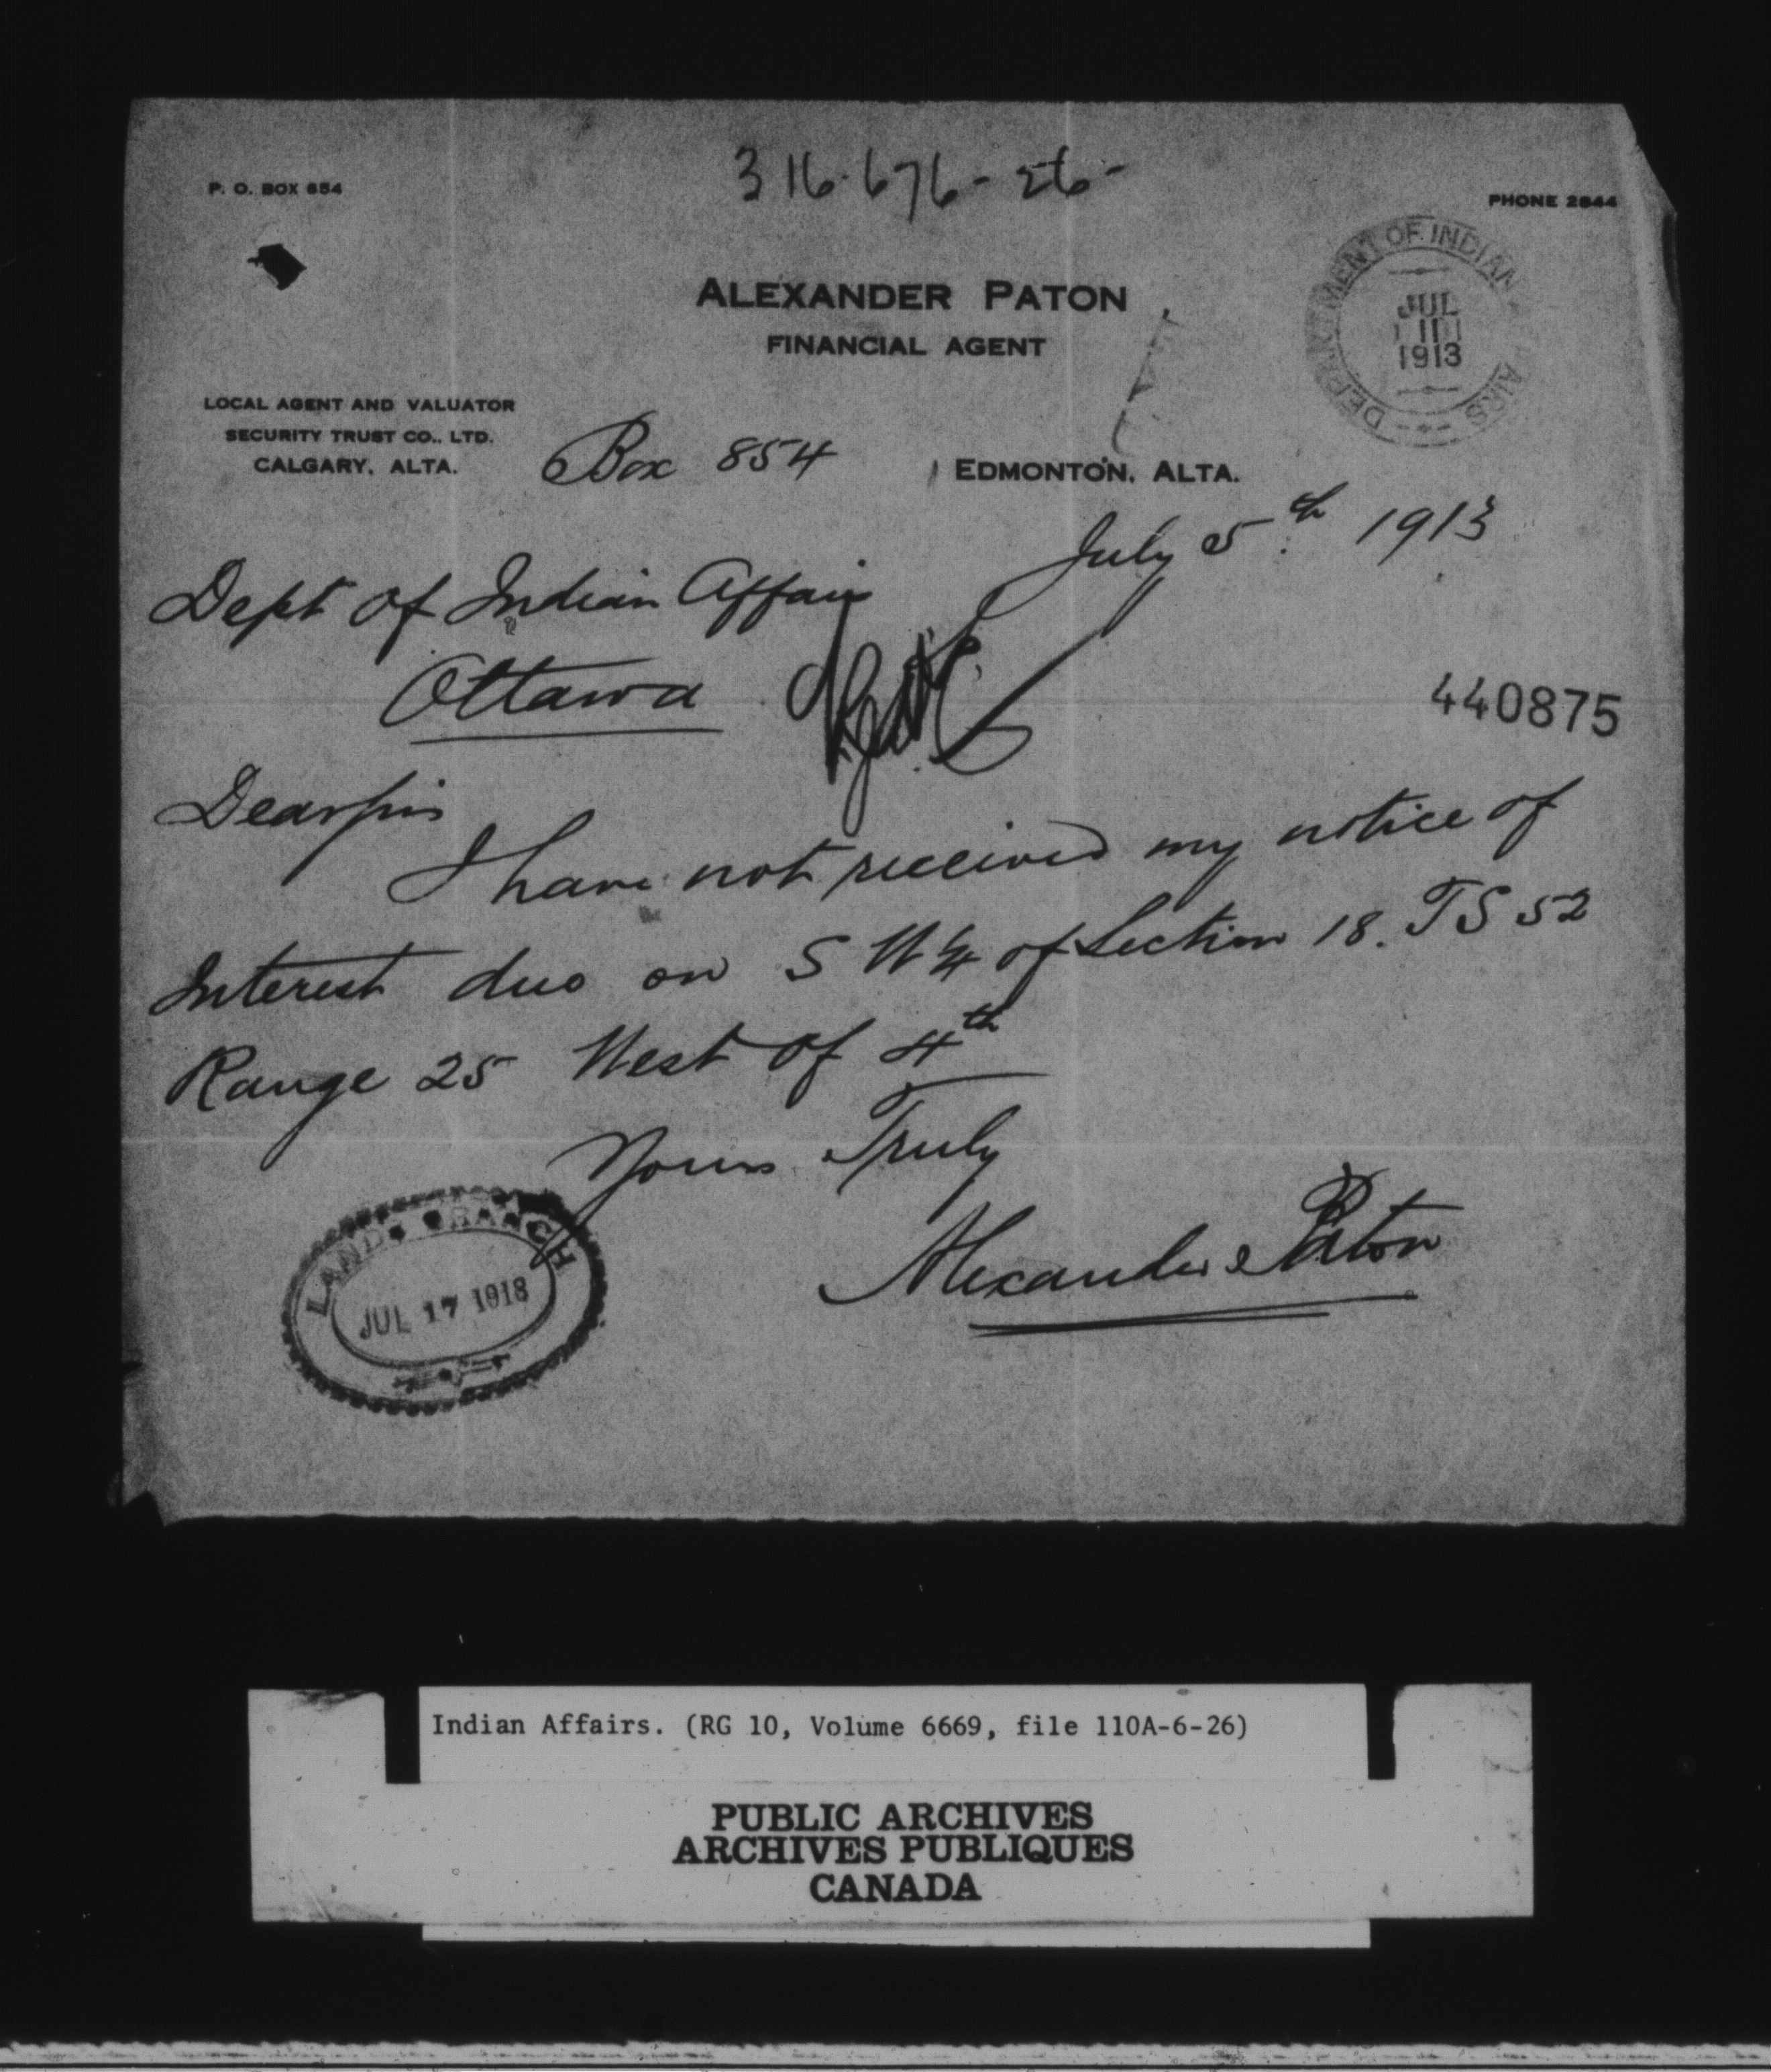 316.676-26-
P. O. BOX 854
PHONE 2644
DEPARTMENT OF INDIAN AFFAIRS
JUL
11
1913
ALEXANDER PATON
FINANCIAL AGENT
LOCAL AGENT AND VALUATOR
SECURITY TRUST CO., LTD.
CALGARY, ALTA.
Box 854
EDMONTON, ALTA.
July 5th 1913
Dept of Indian Affairs
Ottawa
440875
Dear Sir
I have not received my notice of
Interest due on S W 1/4 of Section 18. TS 52
Range 25 West of 4th
Yours Truly
Alexander Paton
LANDS BRANCH
JUL 17 1918
Indian Affairs. (RG 10, Volume 6669, file 110A-6-26)
PUBLIC ARCHIVES
ARCHIVES PUBLIQUES
CANADA